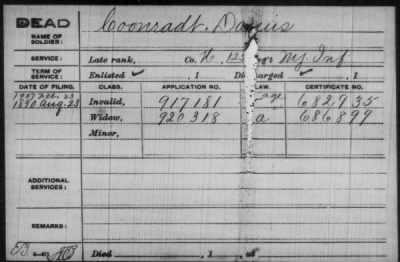 DEAD
NAME OF SOLDIER: Coonradt, Darius
SERVICE: Late rank, Co. H, 125 Rgt NY Inf
TERM OF SERVICE: Enlisted ✓, 1 Discharged ✓, 1
DATE OF FILING. CLASS. APPLICATION NO. LAW. CERTIFICATE NO.
1907 Feb. 23 Invalid, 917181 682,935
1890 Aug. 23 Widow, 920318 a 686,899
Minor,
ADDITIONAL SERVICES:
REMARKS:
Died , 1 , at